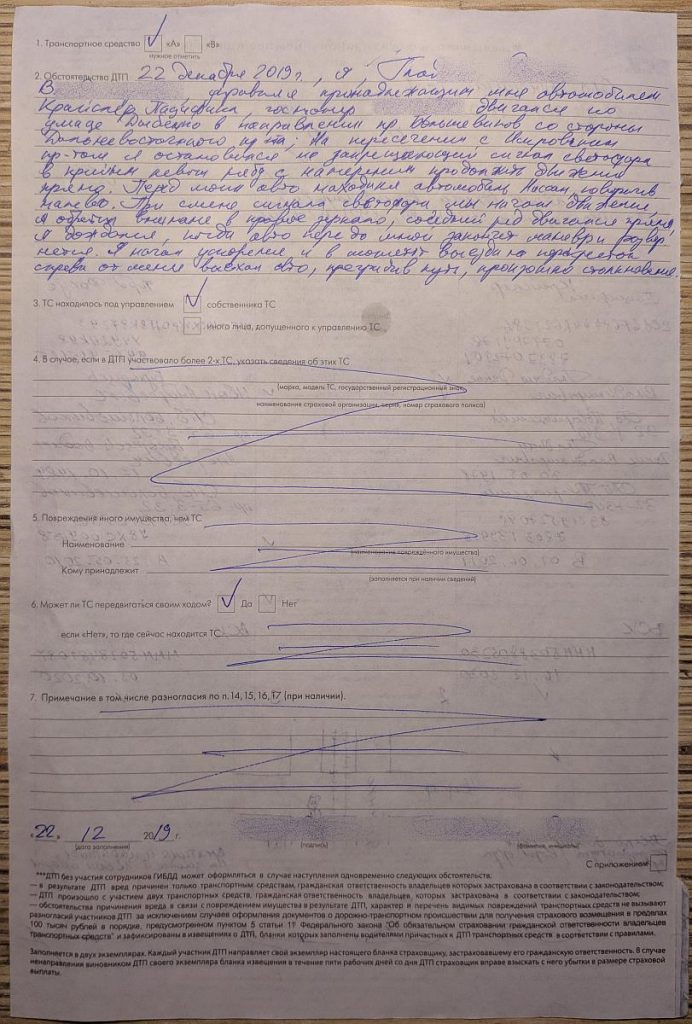 1. Транспортное средство «А» «В»
нужное отметить
2. Обстоятельства ДТП 22 декабря 2019г., я,
В управлял принадлежащим мне автомобилем
Крайслер Пацифика, госномер двигался по
улице Дыбенко в направлении пр. Большевиков со стороны
Дальневосточного пр-та; На пересечении с Искровским
пр-том я остановился на запрещающий сигнал светофора
в крайнем левом ряду с намерением продолжить движение
прямо. Перед моим авто находился автомобиль Нисан,
налево. При смене сигнала светофора мы начали движение.
Я обратил внимание в правое зеркало, соседний ряд двигался прямо,
я дождался, когда авто передо мной закончит маневр и
Я начал ускорение и в момент выезда на перекресток
справа от меня выехал авто, преградив путь, произошло столкновение.
3. ТС находилось под управлением собственника ТС
иного лица, допущенного к управлению ТС
4. В случае, если в ДТП участвовало более 2-х ТС, указать сведения об этих ТС
(марка, модель ТС, государственный регистрационный знак,
наименование страховой организации, серия, номер страхового полиса)
5. Повреждения иного имущества, чем ТС
Наименование
(наименование повреждённого имущества)
Кому принадлежит
(заполняется при наличии сведений)
6. Может ли ТС передвигаться своим ходом? Да Нет
если «Нет», то где сейчас находится ТС
7. Примечание в том числе разногласия по п.14,15,16,17 (при наличии).
«22» 12 2019 г.
(дата заполнения) (подпись) (фамилия, инициалы)
С приложением
***ДТП без участия сотрудников ГИБДД может оформляться в случае наступления одновременно следующих обстоятельств:
— в результате ДТП вред причинен только транспортным средствам, гражданская ответственность владельцев которых застрахована в соответствии с законодательством;
— ДТП произошло с участием двух транспортных средств, гражданская ответственность владельцев, которых застрахована в соответствии с законодательством;
— обстоятельства причинения вреда в связи с повреждением имущества в результате ДТП, характер и перечень видимых повреждений транспортных средств не вызывают
разногласий участников ДТП за исключением случаев оформления документов о дорожно-транспортном происшествии для получения страхового возмещения в пределах
100 тысяч рублей в порядке, предусмотренном пунктом 5 статьи 11 Федерального закона "Об обязательном страховании гражданской ответственности владельцев
транспортных средств" и зафиксированы в извещении о ДТП, бланки которых заполнены водителями причастных к ДТП транспортных средств в соответствии с правилами.
Заполняется в двух экземплярах. Каждый участник ДТП направляет свой экземпляр настоящего бланка страховщику, застраховавшему его гражданскую ответственность. В случае
ненаправления виновником ДТП своего экземпляра бланка извещения в течение пяти рабочих дней со дня ДТП страховщик вправе взыскать с него убытки в размере страховой
выплаты.